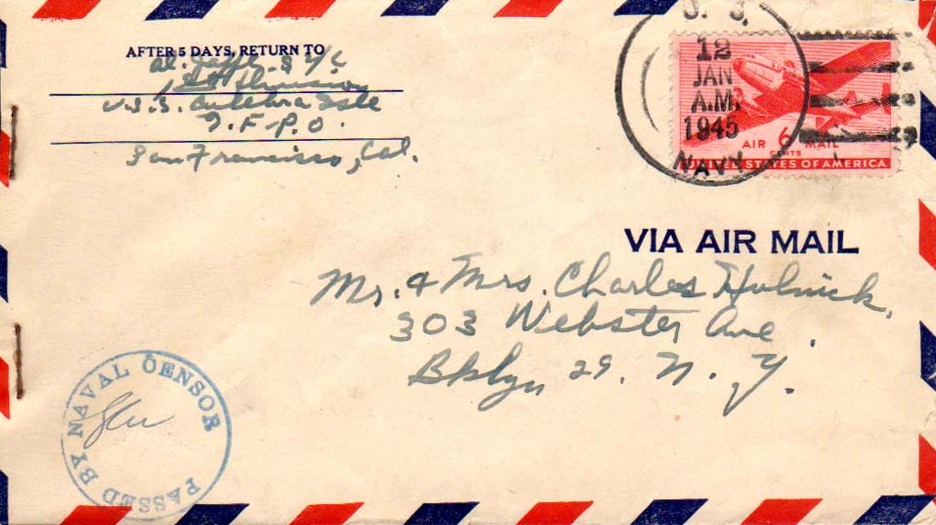 AFTER 5 DAYS, RETURN TO
Al. Jaffe S 1/C
1st Division
U.S.S. Culebra Isle
F.P.O.
San Francisco, Cal.
U. S.
12
JAN
A.M.
1945
NAVY
AIR 6 MAIL
CENTS
UNITED STATES OF AMERICA
VIA AIR MAIL
Mr. & Mrs. Charles
303 Webster Ave.
Bklyn 29. N. Y.
PASSED BY NAVAL CENSOR